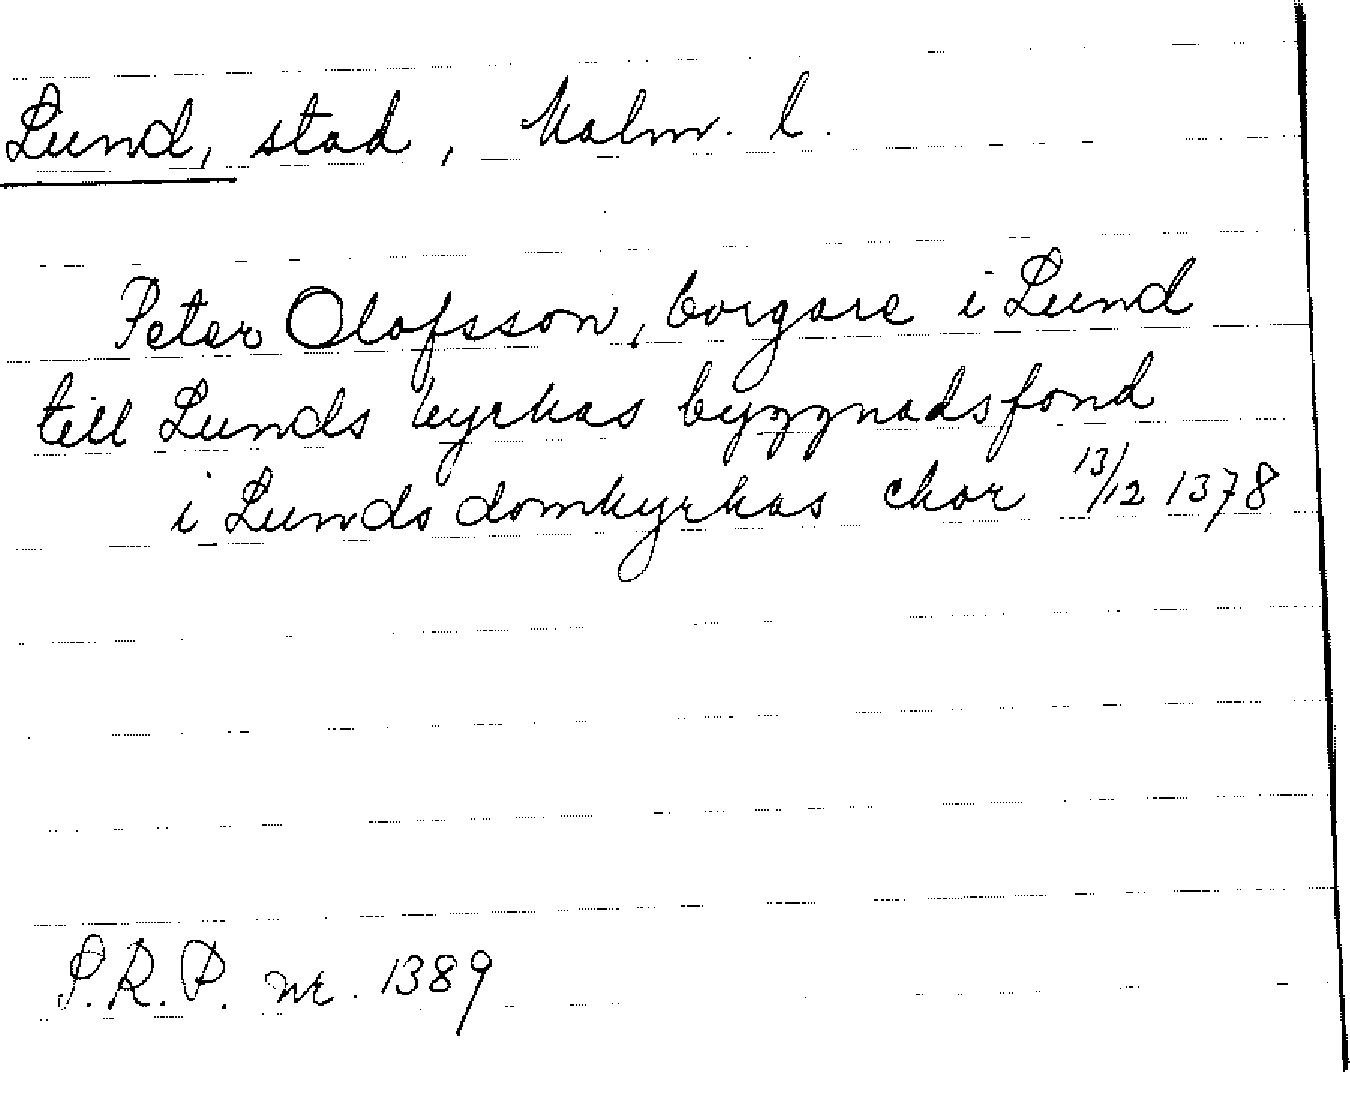 Lund, stad, Malm. l.
Peter Olofsson, borgare i Lund
till Lunds kyrkas byggnadsfond
i Lunds domkyrkas chor 13/12 1378
S.R.P. nr. 1389